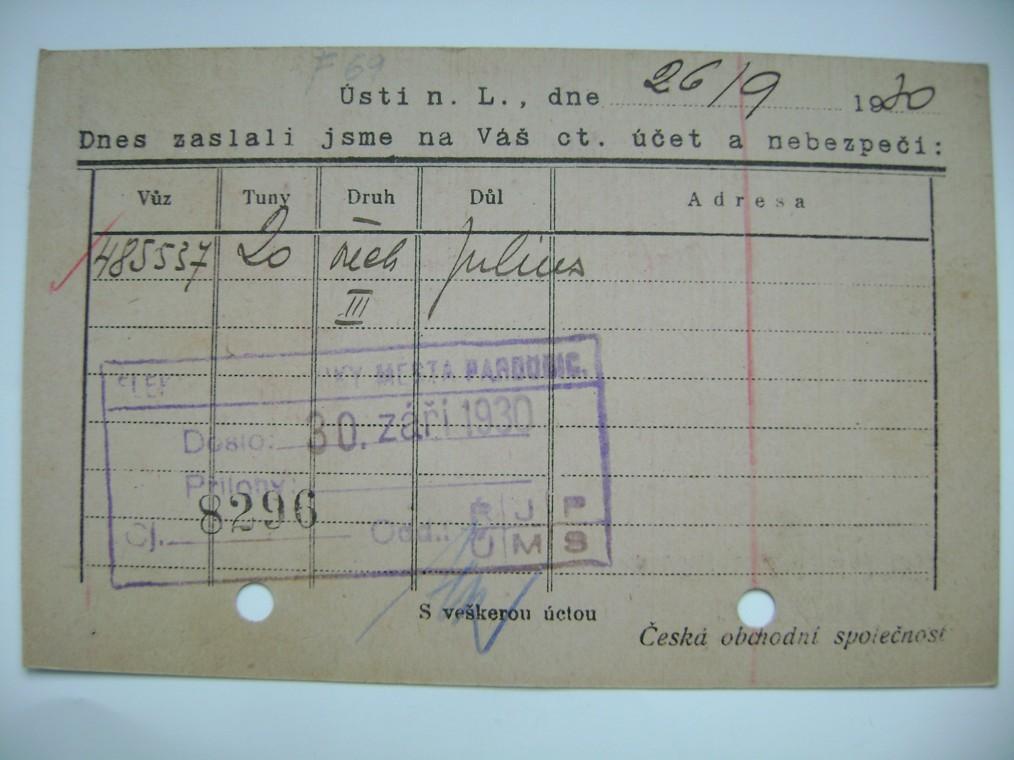 F 69
Ústí n. L., dne 26/9 1930
Dnes zaslali jsme na Váš ct. účet a nebezpečí:
Vůz Tuny Druh Důl Adresa
485537 20 ořech Julius
III
ELEK KY MĚSTA PARDUBIC.
Došlo: 30. září 1930
Přílohy:
Ř J P
Čj. 8296 Odd.: Ú M S
S veškerou úctou
Česká obchodní společnost